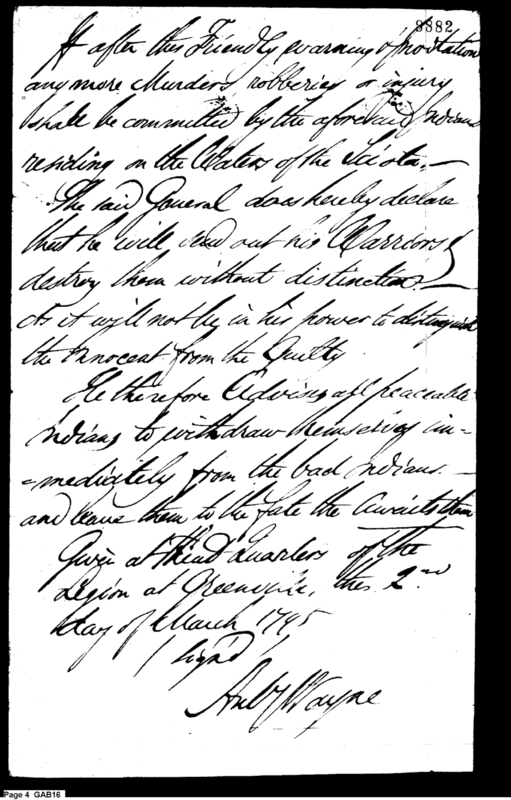 9882
If after this Friendly warning & invitation
any more Murders robberies or injury
shall be committed by the aforesaid Indians
residing on the Waters of the Sciota,—
The said General does hereby declare
that he will send out his Warriors &
destroy them without distinction—
As it will not be in his power to distinguish
the Innocent from the Guilty
He therefore Advises all peaceable
Indians to withdraw themselves im-
=mediately from the bad Indians.—
and leave them to the fate the awaits them
Given at Head Quarters of the
Legion at Greenville, this 2nd
day of March 1795
/ sign'd /
Anty Wayne
Page 4 GAB16